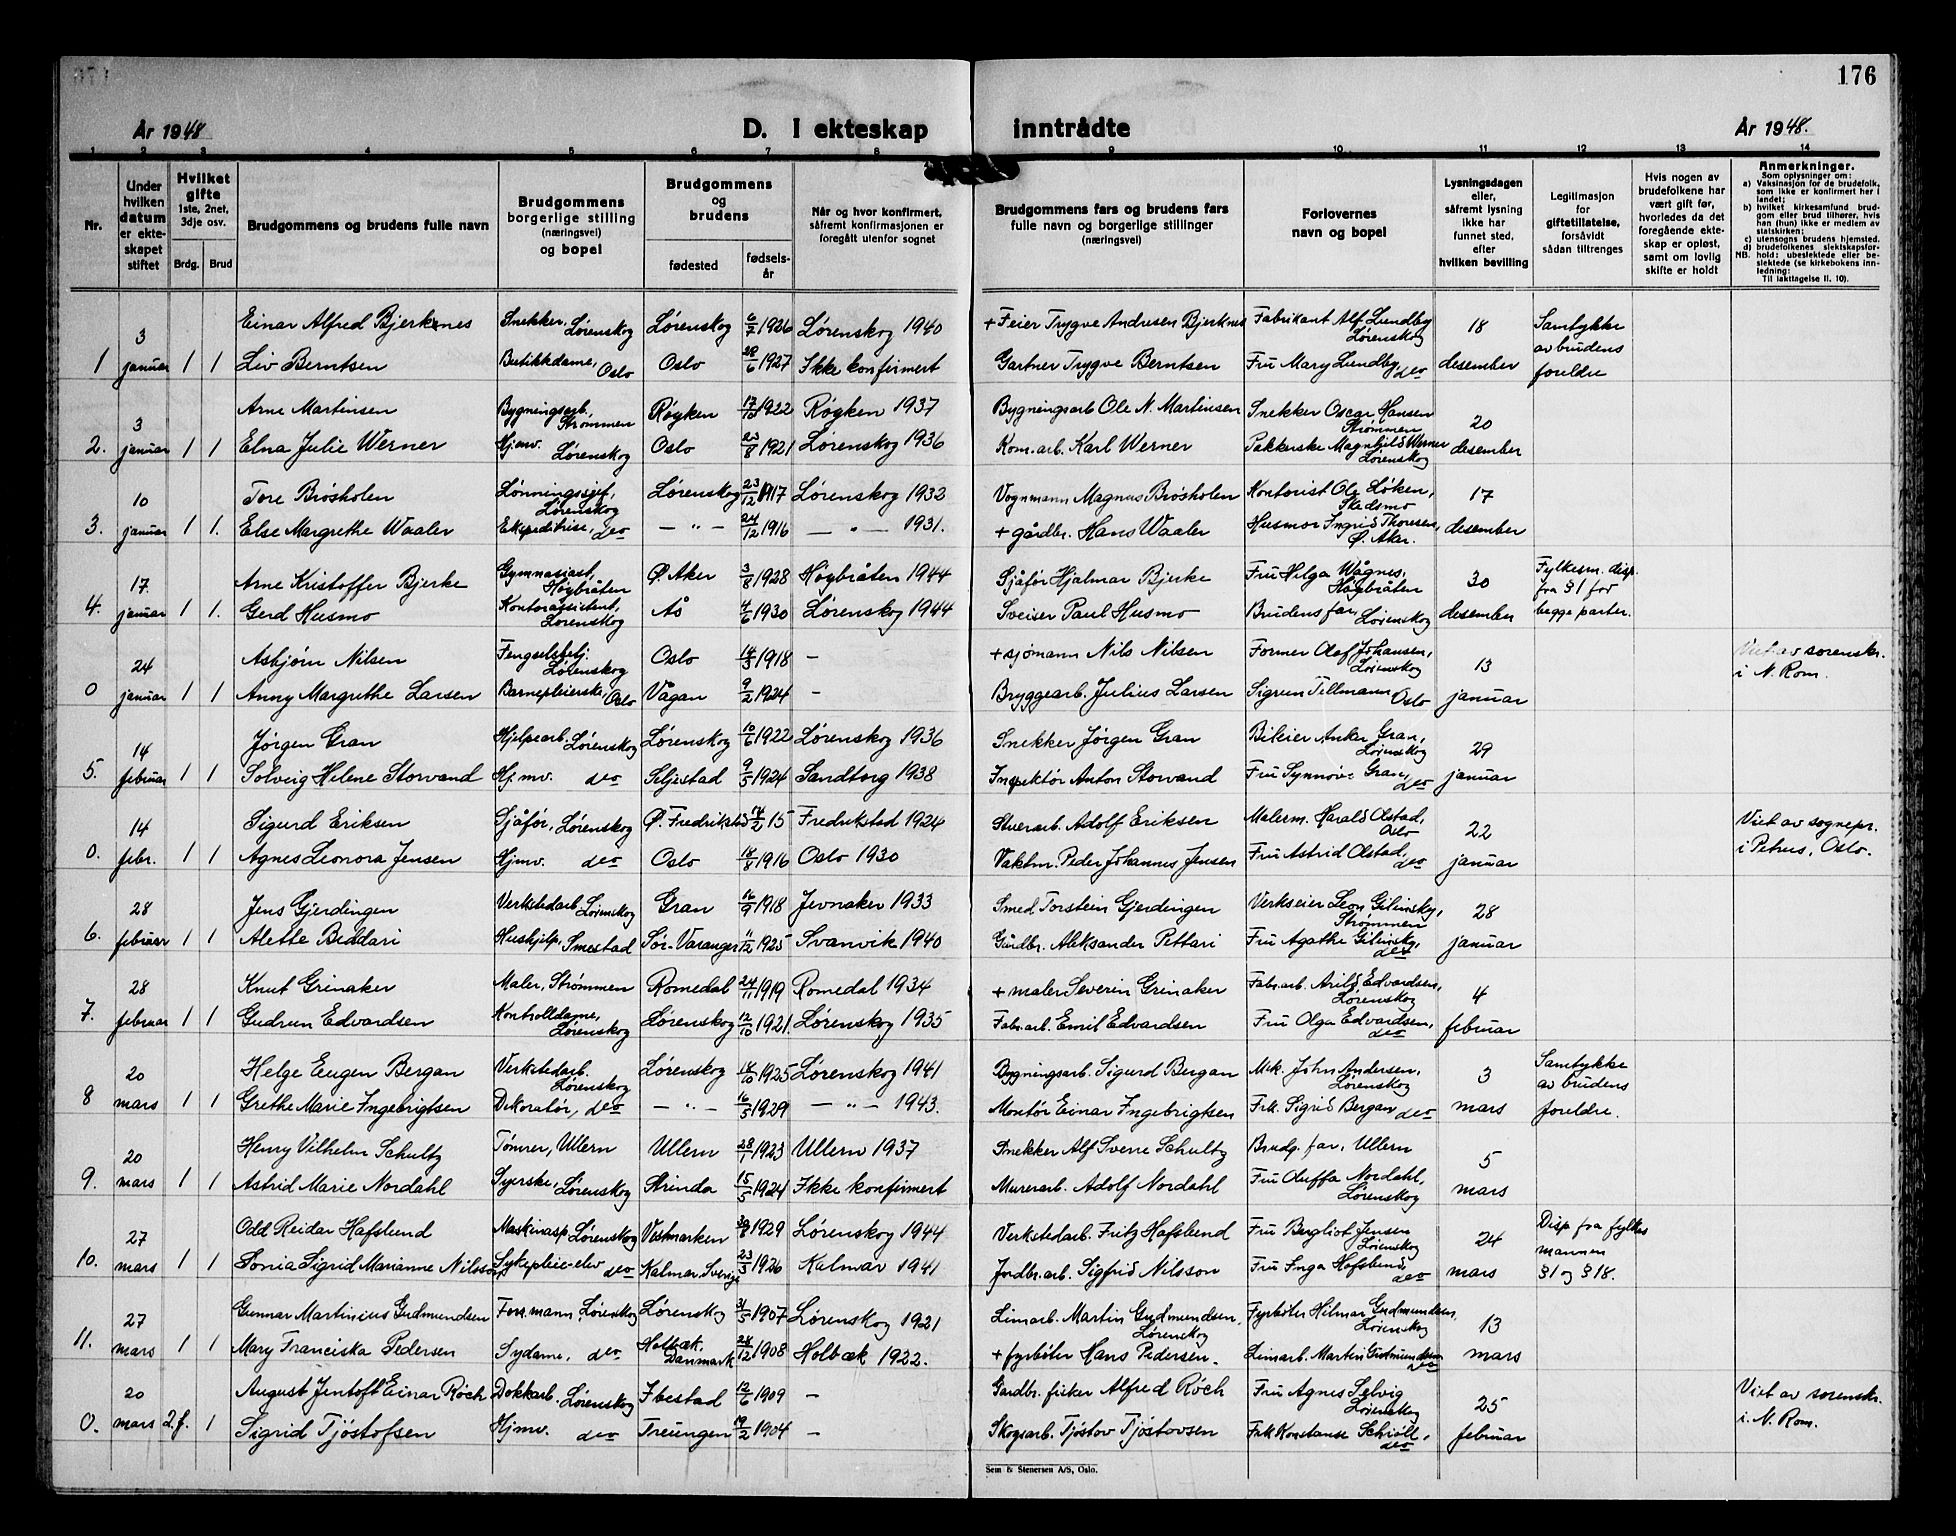 176
År 1948
D. I ekteskap inntrådte
År 1948.
1 2 3 4 5 6 7 8 9 10 11 12 13 14
Nr.
Under hvilken datum er ekteskapet stiftet
Hvilket gifte 1ste, 2net, 3dje osv.
Brdg. Brud
Brudgommens og brudens fulle navn
Brudgommens borgerlige stilling (næringsvei) og bopel
Brudgommens og brudens
fødested
fødselsår
Når og hvor konfirmert, såfremt konfirmasjonen er foregått utenfor sognet
Brudgommens fars og brudens fars fulle navn og borgerlige stillinger (næringsvei)
Forlovernes navn og bopel
Lysningsdagen eller, såfremt lysning ikke har funnet sted, efter hvilken bevilling
Legitimasjon for giftetillatelse, forsåvidt sådan tiltrenges
Hvis nogen av brudefolkene har vært gift før, hvorledes da det foregående ekteskap er opløst, samt om lovlig skifte er holdt
Anmerkninger.
Som oplysninger om:
a) Vaksinasjon for de brudefolk, som ikke er konfirmert her i landet;
b) hvilket kirkesamfund brudgom eller brud tilhører, hvis han (hun) ikke er medlem av statskirken;
c) utensogns brudens hjemsted.
d) brudefolkenes slektskapsforhold: ubeslektede eller beslektede (se kirkebokens innledning:
NB.
Til iakttagelse II. 10).
3 Einar Alfred Bjerknes Snekker, Lørenskog Lørenskog 6/7 1926 Lørenskog 1940 + Feier Trygve Andresen Bjerknes Fabrikant Alf Lundby Lørenskog 18 Samtykke av brudens
1 januar 1 1 Liv Berntsen Butikkdame, Oslo Oslo 28/6 1927 Ikke konfirmert Gartner Trygve Berntsen Fru Mary Lundby, do desember foreldre
3 Arne Martinsen Bygningsarb., Strømmen Røyken 1922 Røyken 1937 Bygningsarb Ole N. Martinsen Snekker Oscar Hansen Strømmen 20
2. januar 1 1 Elna Julie Werner Hjmv. Lørenskog Oslo 23/8 1921 Lørenskog 1936 Kom. arb. Karl Werner Pakkerske Magnhild Werner Lørenskog desember
10 Tore Brøsholen Lønningssjef, Lørenskog Lørenskog 23/12 1917 Lørenskog 1932 Vognmann Magnus Brøsholen Kontorist Ole Løken, Skedsmo 17
3. januar 1 1. Else Margrethe Waaler Ekspeditrise, do — " — 24/12 1916 — " — 1931. + gårdbr. Hans Waaler Husmor Ingrid Thoresen, Ø. Aker. desember
17. Arne Kristoffer Bjerke Gymnasiast, Høybråten Ø. Aker 3/8 1928 Høybråten 1944 Sjåfør Hjalmar Bjerke Fru Helga Wågnes, Høybråten 30 Fylkesm. disp. fra § 1 for
4. januar 1 1. Gerd Husmo Kontorassistent, Lørenskog Ås 1930 Lørenskog 1944 Sveiser Paul Husmo Brudens far, Lørenskog desember begge parter.
24 Asbjørn Nilsen Fengselsbetj. Lørenskog Oslo 1918 — + sjømann Nils Nilsen Former Olaf Johansen, Lørenskog 13 Viet av sorenskr.
0 januar 1 1 Anny Margrethe Larsen Barnepleierske, Oslo Vågan 9/2 1924 — Bryggearb. Julius Larsen Sigrun Tillmann, Oslo januar i N. Rom.
14 Jørgen Gran Hjelpearb. Lørenskog Lørenskog 10/6 1922 Lørenskog 1936 Snekker Jørgen Gran Bileier Anker Gran, Lørenskog 29
5. februar 1 1 Solveig Helene Storvand Hj. mv. do 9/5 1924 Sandtorg 1938 Inspektør Anton Storvand Fru Synnøve Gran, do januar
14 Sigurd Eriksen Sjåfør, Lørenskog Ø. Fredrikstad 15 Fredrikstad 1924 Adolf Eriksen Malerm. Harald Olstad, Oslo 22 Viet av sognepr.
0. febr. 1 1 Agnes Leonora Jensen Hjmv. do Oslo 1916 Oslo 1930 Vaktm. Peder Johannes Jensen Fru Astrid Olstad, do januar i Petrus, Oslo.
28 Jens Gjerdingen Verkstedarb. Lørenskog Gran 16/9 1918 Jevnaker 1933 Smed Torstein Gjerdingen Verkseier Leon Gilinsky, Strømmen 28
6. februar 1 1 Alette Biddari Hushjelp, Smestad Sør-Varanger 11/12 1925 Svanvik 1940 Gårdbr. Aleksander Pettari Fru Agathe Gilinsky, do januar
28 Knut Grinaker Maler, Strømmen Romedal 24/11 1919 Romedal 1934 + maler Severin Grinaker Fabr. arb. Arild Edvardsen, Lørenskog 4
7. februar 1 1 Gudrun Edvardsen Kontrolldame, Lørenskog Lørenskog 12/10 1921 Lørenskog 1935 Fabr. arb. Emil Edvardsen Fru Olga Edvardsen, do februar
20 Helge Eugen Bergan Verkstedarb. Lørenskog Lørenskog 14/10 1925 Lørenskog 1941 Bygningsarb. Sigurd Bergan Mek. John Andersen, Lørenskog 3 Samtykke av brudens
8 mars 1 1 Grethe Marie Ingebrigtsen Dekoratør, do — " — 16/5 1929 — " — 1943. Montør Einar Ingebrigtsen Frk. Sigrid Bergan do mars foreldre.
20 Henry Vilhelm Schultz Tømrer, Ullern Ullern 28/1 1923 Ullern 1937 Snekker Alf Sverre Schultz Brudg. far, Ullern 5
9. mars 1 1 Astrid Marie Nordahl Syerske, Lørenskog Strinda 15/5 1924 Ikke konfirmert Murerarb. Adolf Nordahl Fru Oluffa Nordahl, Lørenskog mars
27 Odd Reidar Hafslund Maskinasp. Lørenskog Vestmarken 1929 Lørenskog 1944 Verkstedarb. Fritz Hafslund Fru Bergliot Jensen Lørenskog 24 Disp fra fylkesmannen
10. mars 1 1 Sonia Sigrid Marianne Nilsson Sykepleie-elev do Kalmar, Sverige 23/3 1926 Kalmar 1941 Jordbr. arb. Sigfrid Nilsson Fru Inga Hafslund do mars § 1 og § 18.
27 Gunnar Martinius Gudmundsen Formann, Lørenskog Lørenskog 31/5 1907 Lørenskog 1921 Limarb. Martin Gudmundsen, Lørenskog Fyrbøter Hilmar Gudmundsen, Lørenskog 13
11. mars 1 1 Mary Franciska Pedersen Sydame, do Holbæk, Danmark 28/12 1908 Holbæk 1922. + fyrbøter Hans Pedersen. Limarb. Martin Gudmundsen do mars
20 August Jentoft Einar Røch Dokkarb. Lørenskog Ibestad 12/6 1909 — Gardbr. fisker Alfred Røch Fru Agnes Selvig Lørenskog 25 Viet av sorenskr.
0. mars 2.f. 1 Sigrid Tjøstofsen Hjmv. do Treungen 19/2 1904 — Skogsarb. Tjøstov Tjøstovsen Frk Konstanse Schiøll, do februar i. N. Rom.
Sem & Stenersen A/S, Oslo.